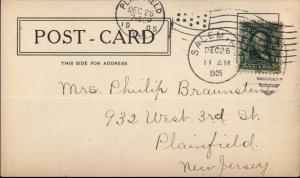 PLAINFIELD
DEC 26
1905
POST-CARD
THIS SIDE FOR ADDRESS
SALEM
DEC 26
11 AM
1905
Mrs. Philip Braunstein
932 West 3rd St.
Plainfield
New Jersey.